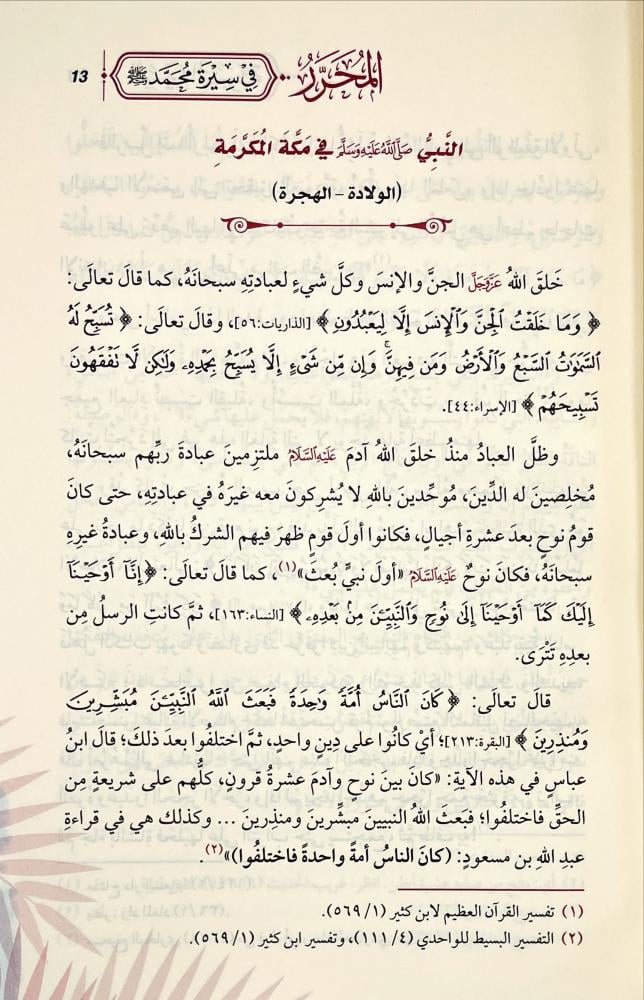 المُحَرَّرُ
فِي سِيرَةِ مُحَمَّدٍ ﷺ
13
النَّبِيُّ صَلَّى اللَّهُ عَلَيْهِ وَسَلَّمَ فِي مَكَّةَ الْمُكَرَّمَةِ
(الولادة - الهجرة)
خلقَ اللهُ عَزَّوَجَلَّ الجنَّ والإنسَ وكلَّ شيءٍ لعبادتِهِ سبحانَهُ، كما قالَ تعالى:
﴿ وَمَا خَلَقْتُ الْجِنَّ وَالْإِنسَ إِلَّا لِيَعْبُدُونِ ﴾ [الذاريات:٥٦]، وقال تعالى: ﴿ تُسَبِّحُ لَهُ
السَّمَٰوَٰتُ السَّبْعُ وَالْأَرْضُ وَمَن فِيهِنَّ ۚ وَإِن مِّن شَيْءٍ إِلَّا يُسَبِّحُ بِحَمْدِهِۦ وَلَٰكِن لَّا تَفْقَهُونَ
تَسْبِيحَهُمْ ﴾ [الإسراء:٤٤].
وظلَّ العبادُ منذُ خلقَ اللهُ آدمَ عَلَيْهِ السَّلَامُ ملتزمينَ عبادةَ ربِّهم سبحانَهُ،
مُخلِصينَ له الدِّينَ، مُوحِّدينَ باللهِ لا يُشرِكونَ معه غيرَهُ في عبادتِهِ، حتى كانَ
قومُ نوحٍ بعدَ عشرةِ أجيالٍ، فكانوا أولَ قومٍ ظهرَ فيهم الشركُ باللهِ، وعبادةُ غيرِهِ
سبحانَهُ، فكان نوحٌ عَلَيْهِ السَّلَامُ «أولَ نبيٍّ بُعثَ»(١)، كما قال تعالى: ﴿إِنَّا أَوْحَيْنَا
إِلَيْكَ كَمَا أَوْحَيْنَا إِلَىٰ نُوحٍ وَالنَّبِيِّـۧنَ مِنْ بَعْدِهِۦ ﴾ [النساء:١٦٣]، ثمَّ كانتِ الرسلُ مِن
بعدِهِ تَتْرَى.
قالَ تعالى: ﴿ كَانَ النَّاسُ أُمَّةً وَٰحِدَةً فَبَعَثَ اللَّهُ النَّبِيِّـۧنَ مُبَشِّرِينَ
وَمُنذِرِينَ ﴾ [البقرة:٢١٣]؛ أيْ كانُوا على دِينٍ واحدٍ، ثمَّ اختلفُوا بعدَ ذلكَ؛ قالَ ابنُ
عباسٍ في هذه الآيةِ: «كانَ بينَ نوحٍ وآدمَ عشرةُ قرونٍ، كلُّهم على شريعةٍ مِن
الحقِّ فاختلَفُوا؛ فبَعثَ اللهُ النبيينَ مبشِّرينَ ومنذرينَ ... وكذلك هي في قراءةِ
عبدِ اللهِ بن مسعودٍ: (كانَ الناسُ أمةً واحدةً فاختلَفُوا)»(٢).
(١) تفسير القرآن العظيم لابن كثير (١/ ٥٦٩).
(٢) التفسير البسيط للواحدي (٤/ ١١١)، وتفسير ابن كثير (١/ ٥٦٩).